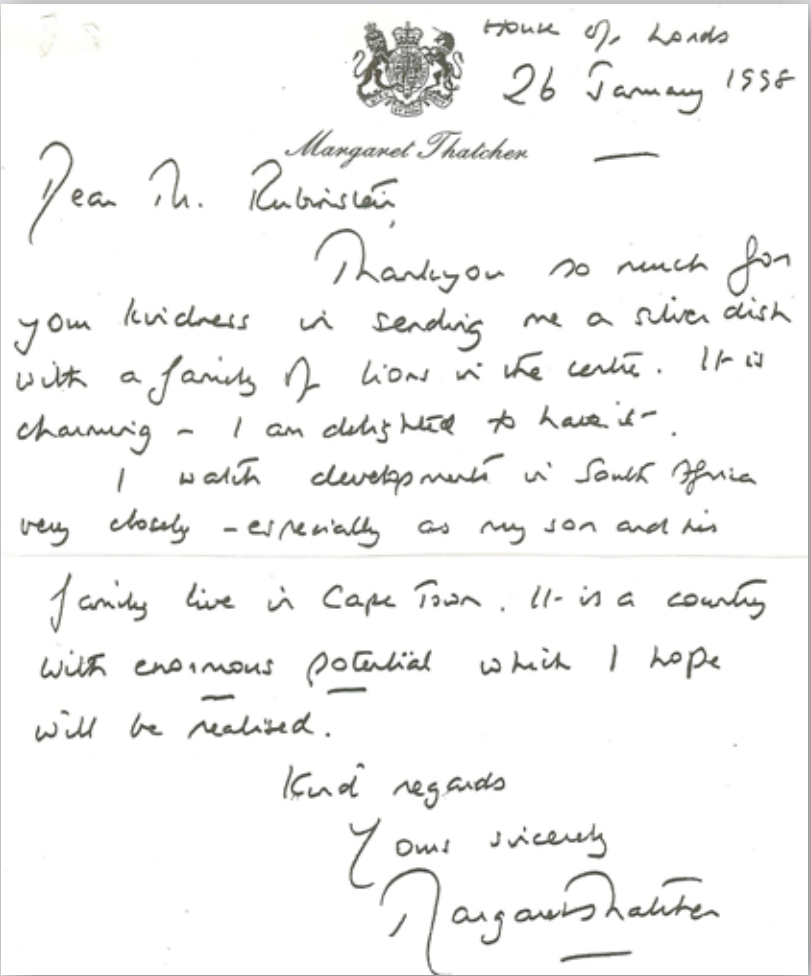 House of Lords
26 January 1998
Margaret Thatcher
Dear Mr. Rubinstein,
Thankyou so much for
your kindness in sending me a silver dish
with a family of lions in the centre. It is
charming - I am delighted to have it.
I watch developments in South Africa
very closely - especially as my son and his
family live in Cape Town. It is a country
with enormous potential which I hope
will be realised.
Kind regards
Yours sincerely
Margaret Thatcher